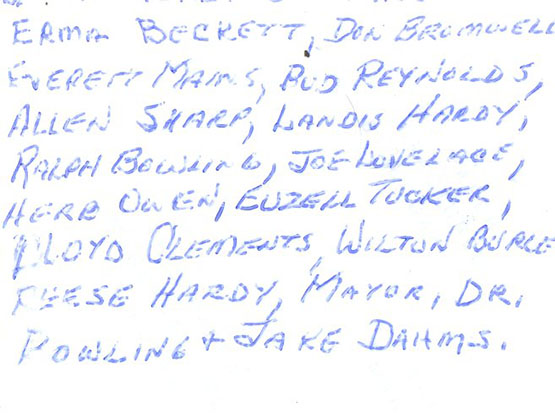 Erma Beckett, Don Bromwell
Everett Mains, Bud Reynolds,
Allen Sharp, Landis Hardy,
Ralph Bowling, Joe Lovelace,
Herb Owen, Euzell Tucker,
Lloyd Clements, Wilton Burge
Reese Hardy, Mayor, Dr.
Powling + Jake Dahms.